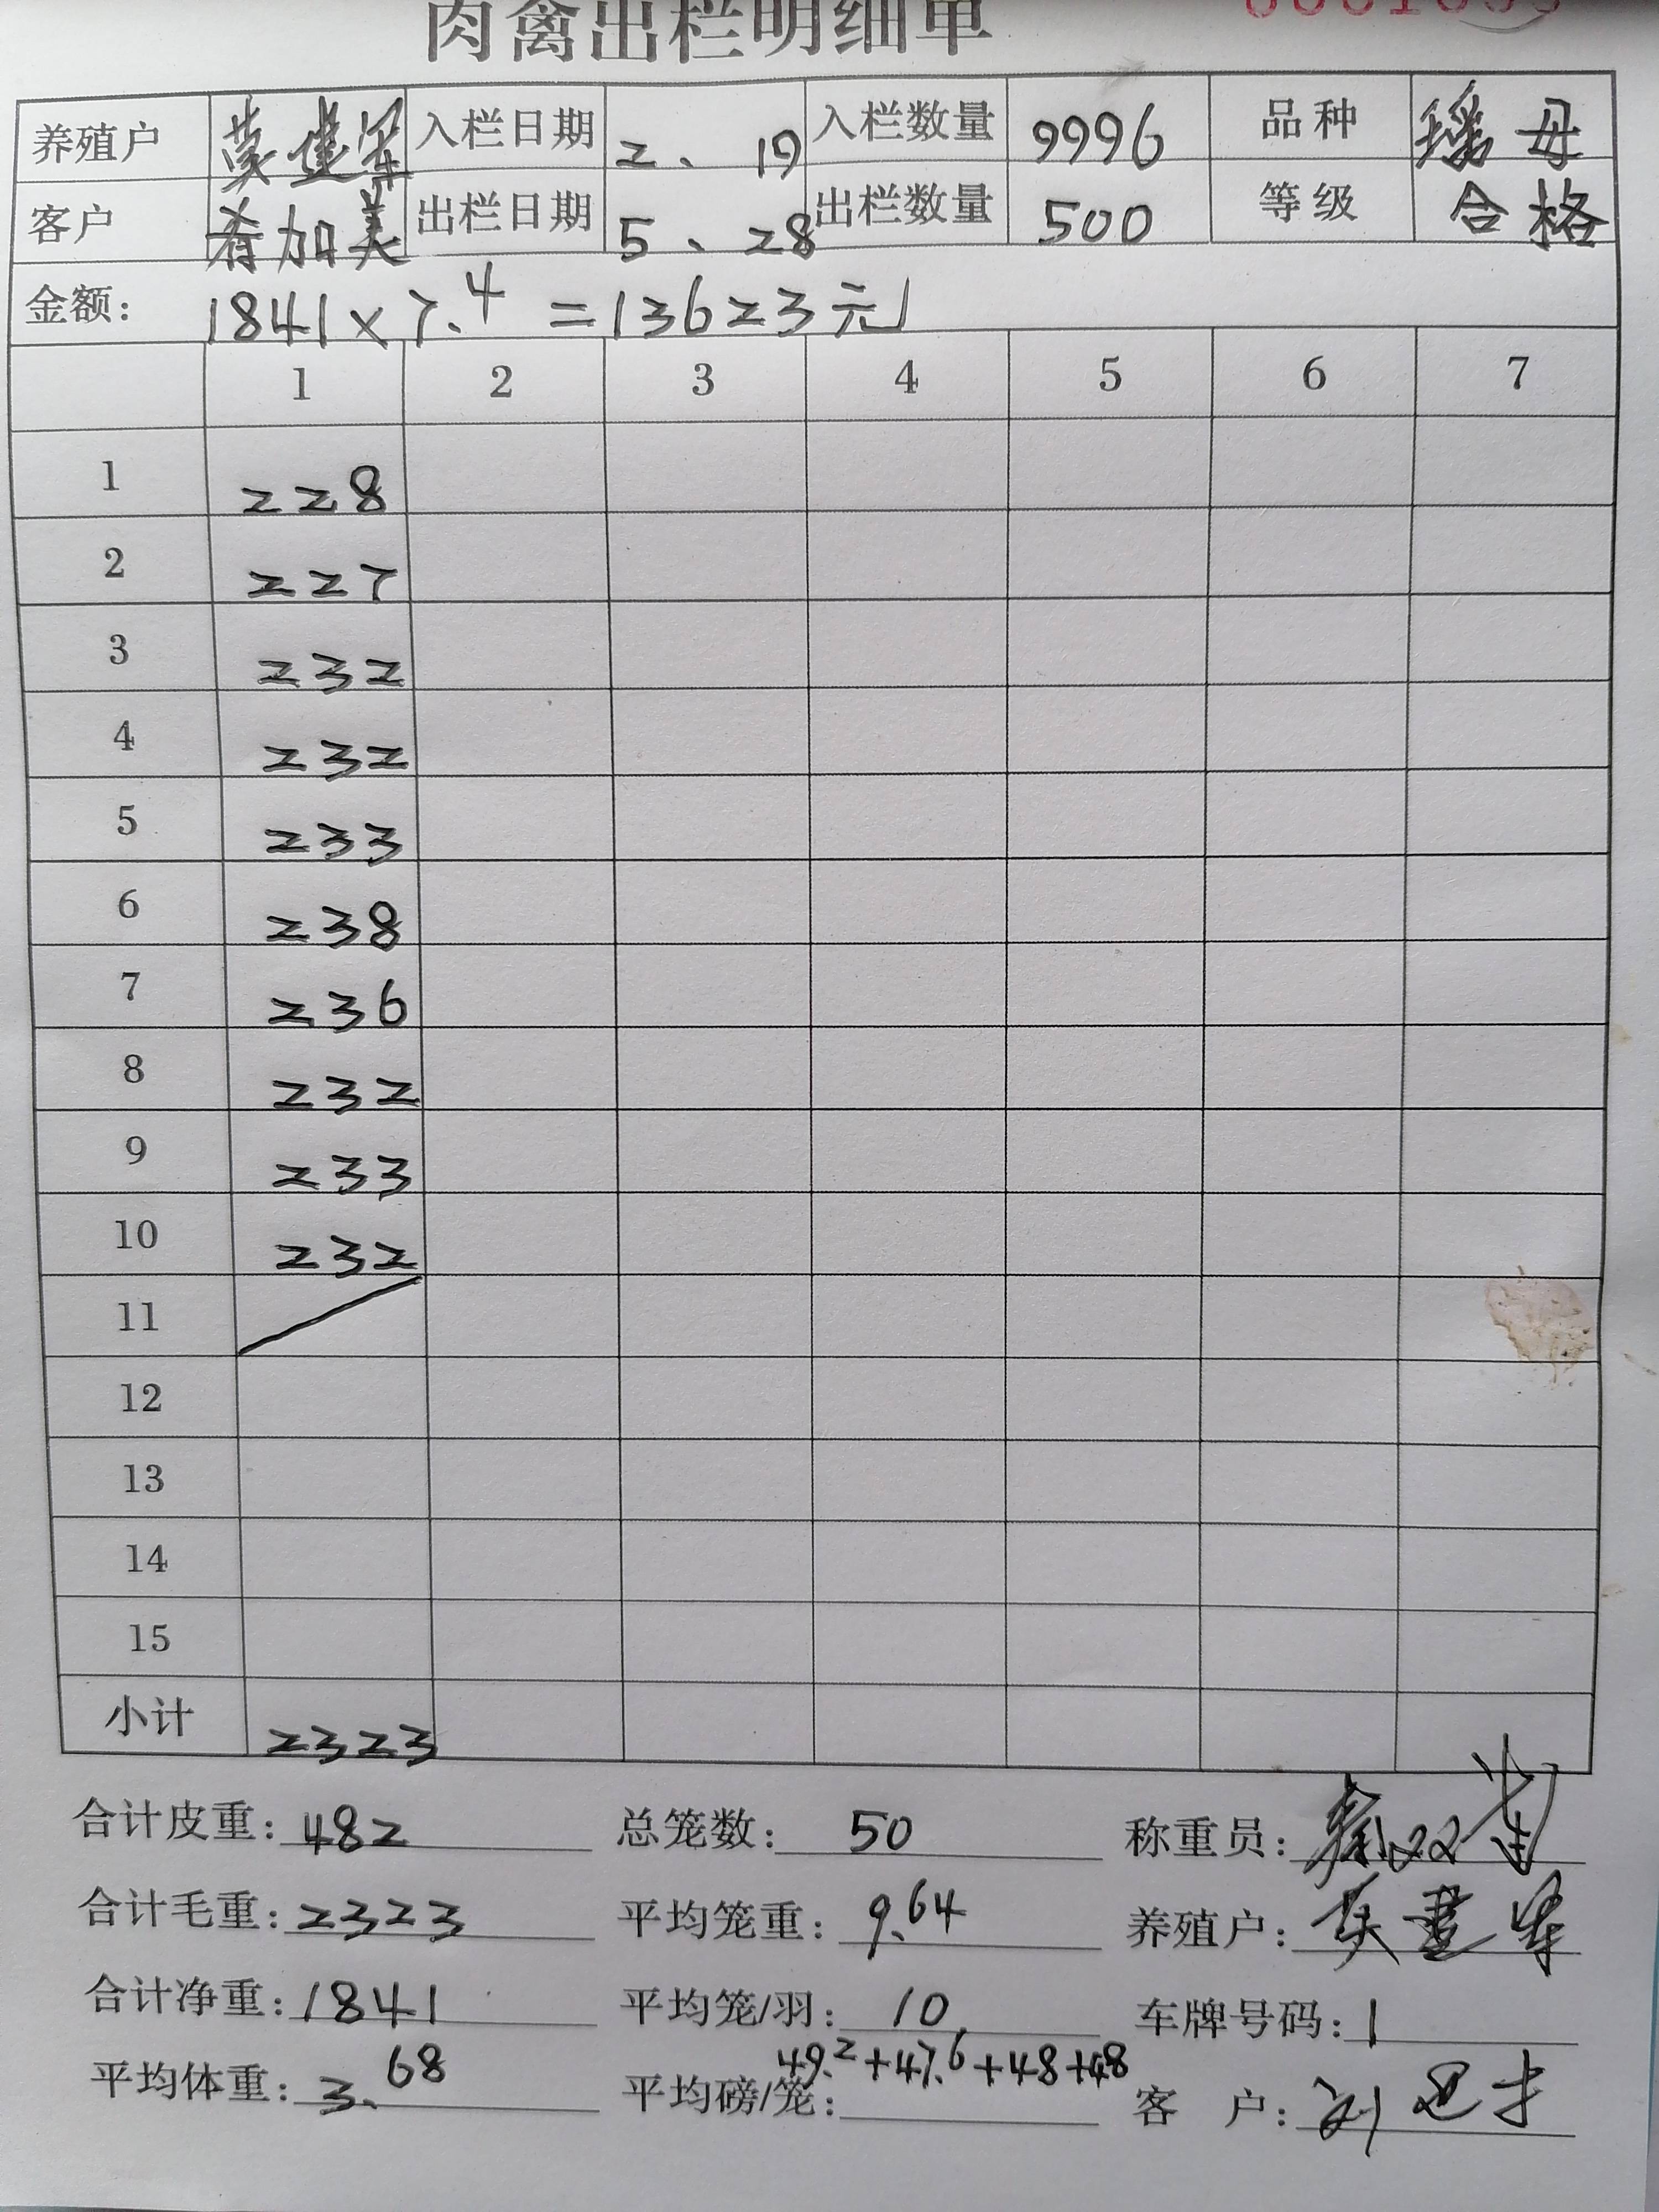 肉禽出栏明细单
养殖户 蒙建军 入栏日期 2、19 入栏数量 9996 品种 瑶母
客户 希加美 出栏日期 5、28 出栏数量 500 等级 合格
金额: 1841×7.4=13623元
1 2 3 4 5 6 7
1 228
2 227
3 232
4 232
5 233
6 238
7 236
8 232
9 233
10 232
11
12
13
14
15
小计 2323
合计皮重: 482 总笼数: 50 称重员:
合计毛重: 2323 平均笼重: 9.64 养殖户:
合计净重: 1841 平均笼/羽: 10 车牌号码: 1
平均体重: 3.68 平均磅/笼: 49.2+47.6+48+48 客 户: